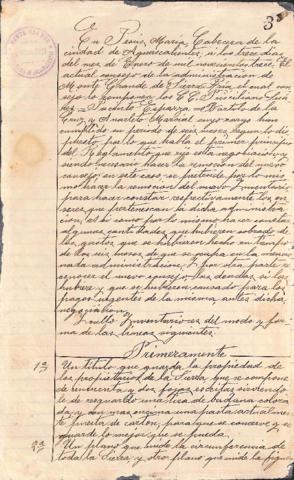 3
En Jesús María, Cabecera de la
ciudad de Aguascalientes, á los trece días
del mes de Enero de mil novecientos trece, El
actual consejo de la administracion de
Monte Grande de Sierra Fria, el cual con
sejo lo componian los CC. Sán
chez = Jacinto Esparza = Bartolo de la
Cruz y Anacleto Marcial cuyo cargo han
cumplido su período de seis meses segun lo dis
puesto por lo que habla el primer principio
del Reglamento que rije esta negociacion y
siendo necesario hacer la remocion del nuevo
consejo, en este caso se pretende por lo mis
mo hacer la remocion del nuevo Inventario
para hacer constar respectivamente los en
seres que pertenescan á la dicha administra
cion, así como por lo mismo hacer constar
algunas cantidades que hubieren sobrado de
los gastos que se hubieren hecho en tiempo
de los seis meses que se ocupa en la mencio
nada administracion, y por otra parte
conocer el nuevo consejo las deudas si las
hubiere y que se hubieren causado para los
pagos urgentes de la misma antes dicha
negociacion
y el Inventario es del modo y for
ma de las lineas siguientes.
Primeramente
1ª Un titulo que guarda la propiedad de
los propietarios de la Sierra que se compone
de noventa y dos fojas escritas sirviendo
le de resguardo una tira de badana colora
da, y con mas encima una pasta actualmen
te puesta de carton, para que se conserve y se
guarde lo mejor que se pueda.
2ª Un plano que mide la circunferencia de
toda la Sierra, y otro plano que mide la figura